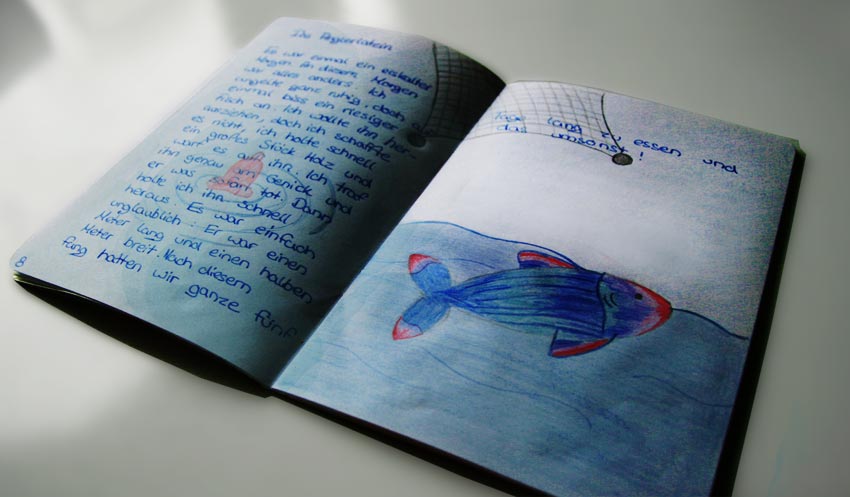 Das Anglerlatein
Es war einmal ein eiskalter
Morgen. An diesem Morgen
war alles anders. Ich
angelte ganz ruhig, doch auf
einmal biss ein riesiger
Fisch an. Ich wollte ihn her-
ausziehen, doch ich schaffte
es nicht, ich holte schnell
ein großes Stück Holz und
warf es auf ihn. Ich traf
ihn genau am Genick und
er war sofort tot. Dann
holte ich ihn schnell
heraus. Es war einfach
unglaublich: Er war einen
Meter lang und einen halben
Meter breit. Nach diesem
Fang hatten wir ganze fünf
8
Tage lang zu essen und
das umsonst!